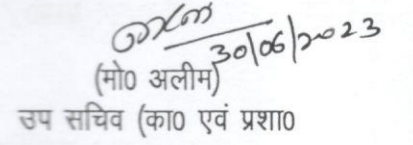 30/06/2023
(मो0 अलीम)
उप सचिव (का0 एवं प्रशा0